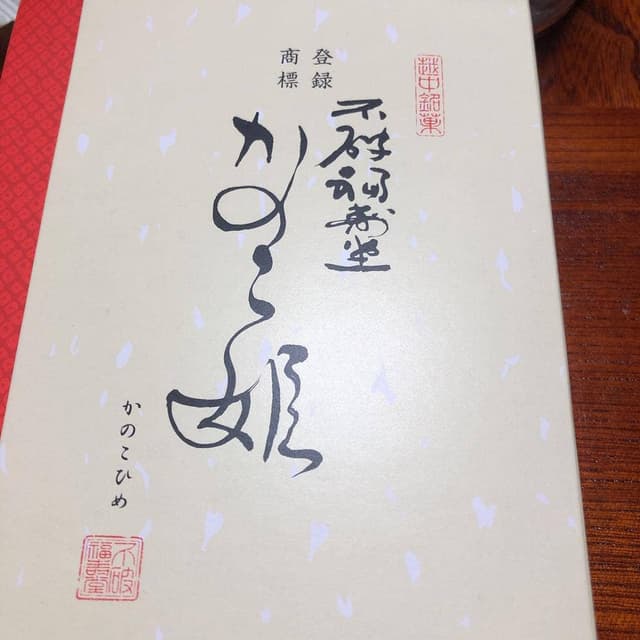 越中銘菓
登録
商標
不破福寿堂
かのこ姫
かのこひめ
不破
福寿堂